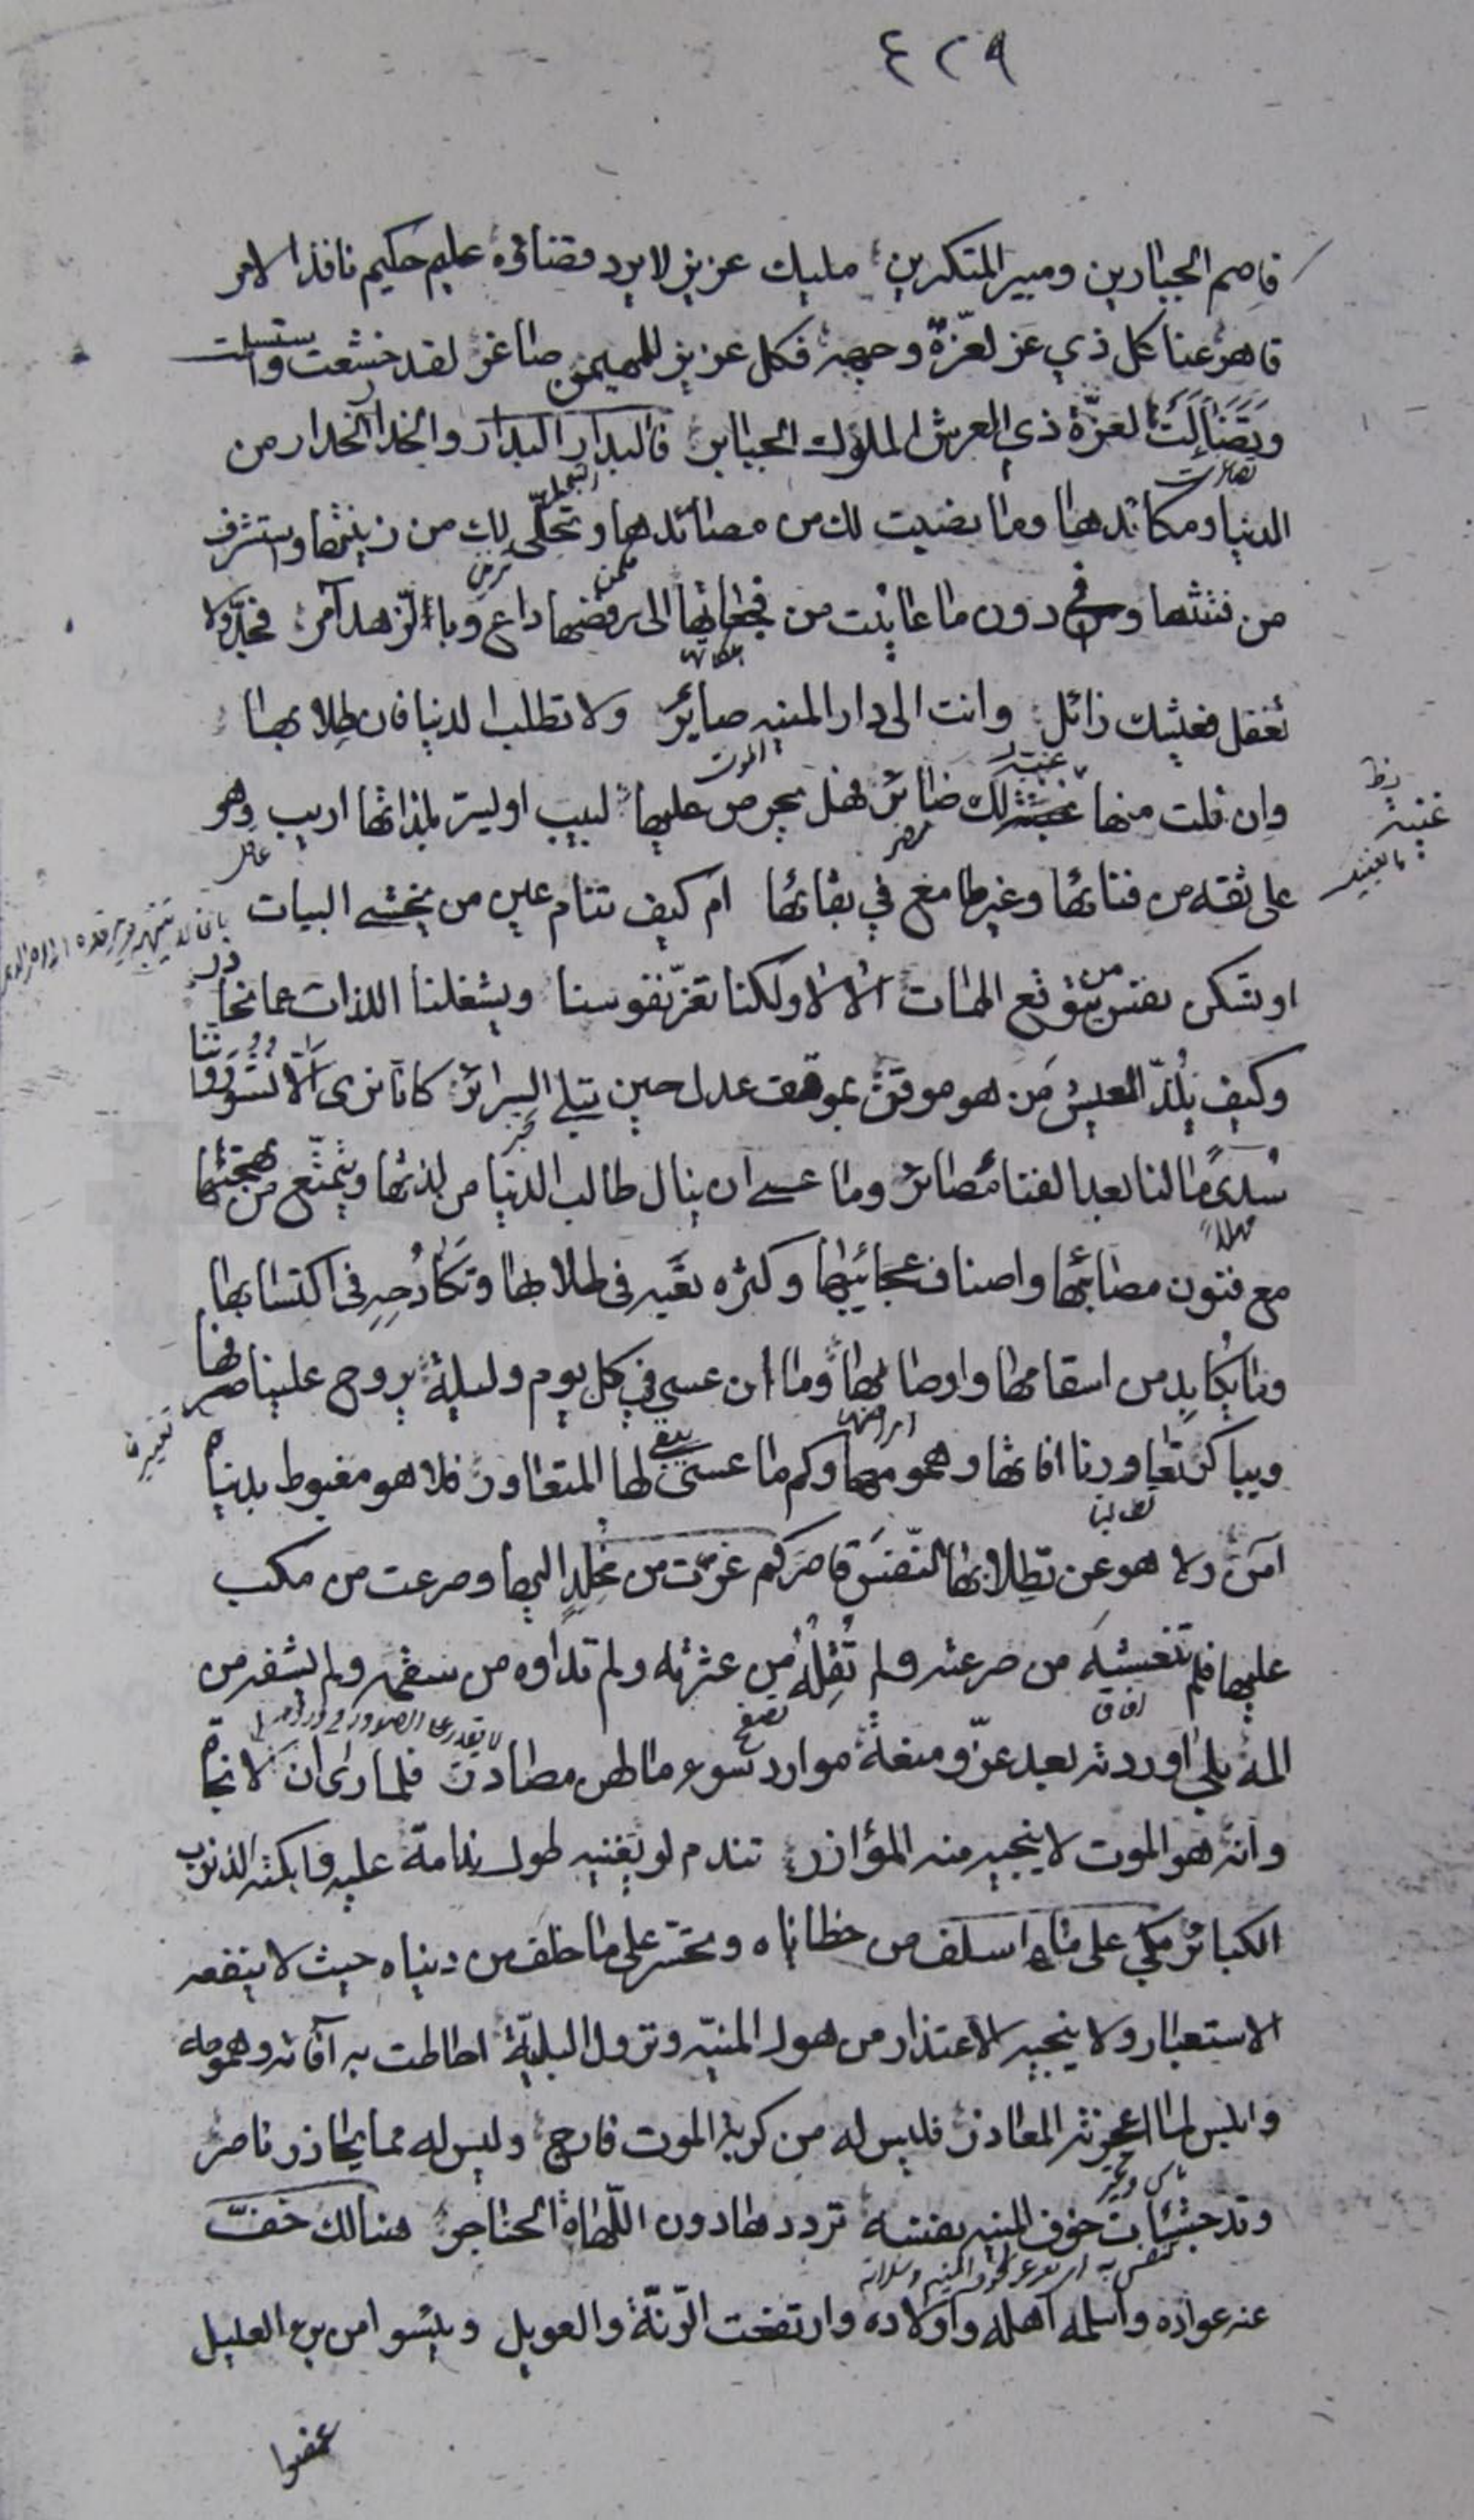 ٤٢٩
قاصم الجبارين ومبير المتكبرين مليك عزيز لا يرد قضاؤه عليم حكيم نافذ الامر
قاهر عنا كل ذي عز لعزة وجهه فكل عزيز للمهيمن صاغر لقد خشعت واستسلمت
وتضائلت لعزة ذي العرش الملوك الجبابر فالبدار البدار والحذار الحذار من
تصاغرت
الدنيا ومكائدها وما نصبت لك من مصائدها وتحلى لك من زينتها واستشرف
من فتنتها وفي دون ما عاينت من فجعاتها الى رفضها داع وبالزهد آمر فجد ولا
تغفل فعيشك زائل وانت الى دار المنيه صاير ولا تطلب الدنيا فان طلابها
الموت
وان نلت منها غبة لك ضائر فهل يحرص عليها لبيب او ليسر بلذاتها اريب وهو
غنية
على ثقه من فنائها وغير طامع في بقائها ام كيف تنام عين من يخشى البيات
او تسكن نفس من يتوقع الممات الا لا ولكنا نغر نفوسنا ويشغلنا اللذات عما نحاذر
وكيف يلذ العيش من هو موقن بموقف عدل حين تبلى السرائر كانا نرى الا نشور وانا
سدى ما لنا بعد الفناء مصائر وما عسى ان ينال طالب الدنيا من لذتها ويتمتع من بهجتها
مهملا
مع فنون مصائبها واصناف عجائبها وكثره تعبه في طلابها وتكادحه في اكتسابها
وما يكابد من اسقامها واوصابها وما ان عسى في كل يوم وليلة يروح علينا صرفها
ويباكر تعاورنا افاتها وهمومها وكم ما عسى يبقى لها المتعاور فلا هو مغبوط بدنياه
امراضها
آمن ولا هو عن تطلابها النفس قاصر كم غرت من مخلد اليها وصرعت من مكب
عليها فلم تنعشه من صرعته ولم تقله من عثرته ولم تداوه من سقمه ولم تشفه من
المه بلى اوردته بعد عز ومنعة موارد سوء ما لهن مصادر فلما راى ان لا نجاة
وانه هو الموت لا ينجيه منه المؤازر تندم لو يغنيه طول ندامة عليه وابكته الذنوب
الكبائر بكي على ما اسلف من خطاياه وتحسر على ما خلف من دنياه حيث لا ينفعه
الاستعبار ولا ينجيه الاعتذار من هول المنيه ونزول البلية احاطت به آفاته وهمومه
وابلس لما اعجزته المعاذر فليس له من كربة الموت فارج وليس له مما يحاذر ناصر
وقد جشئات خوف المنيه نفسه ترددها دون اللهاة الحناجر هنالك خف
عنه عواده واسلمه اهله واولاده وارتفعت الرنة والعويل ويئسوا من برء العليل
غمضوا